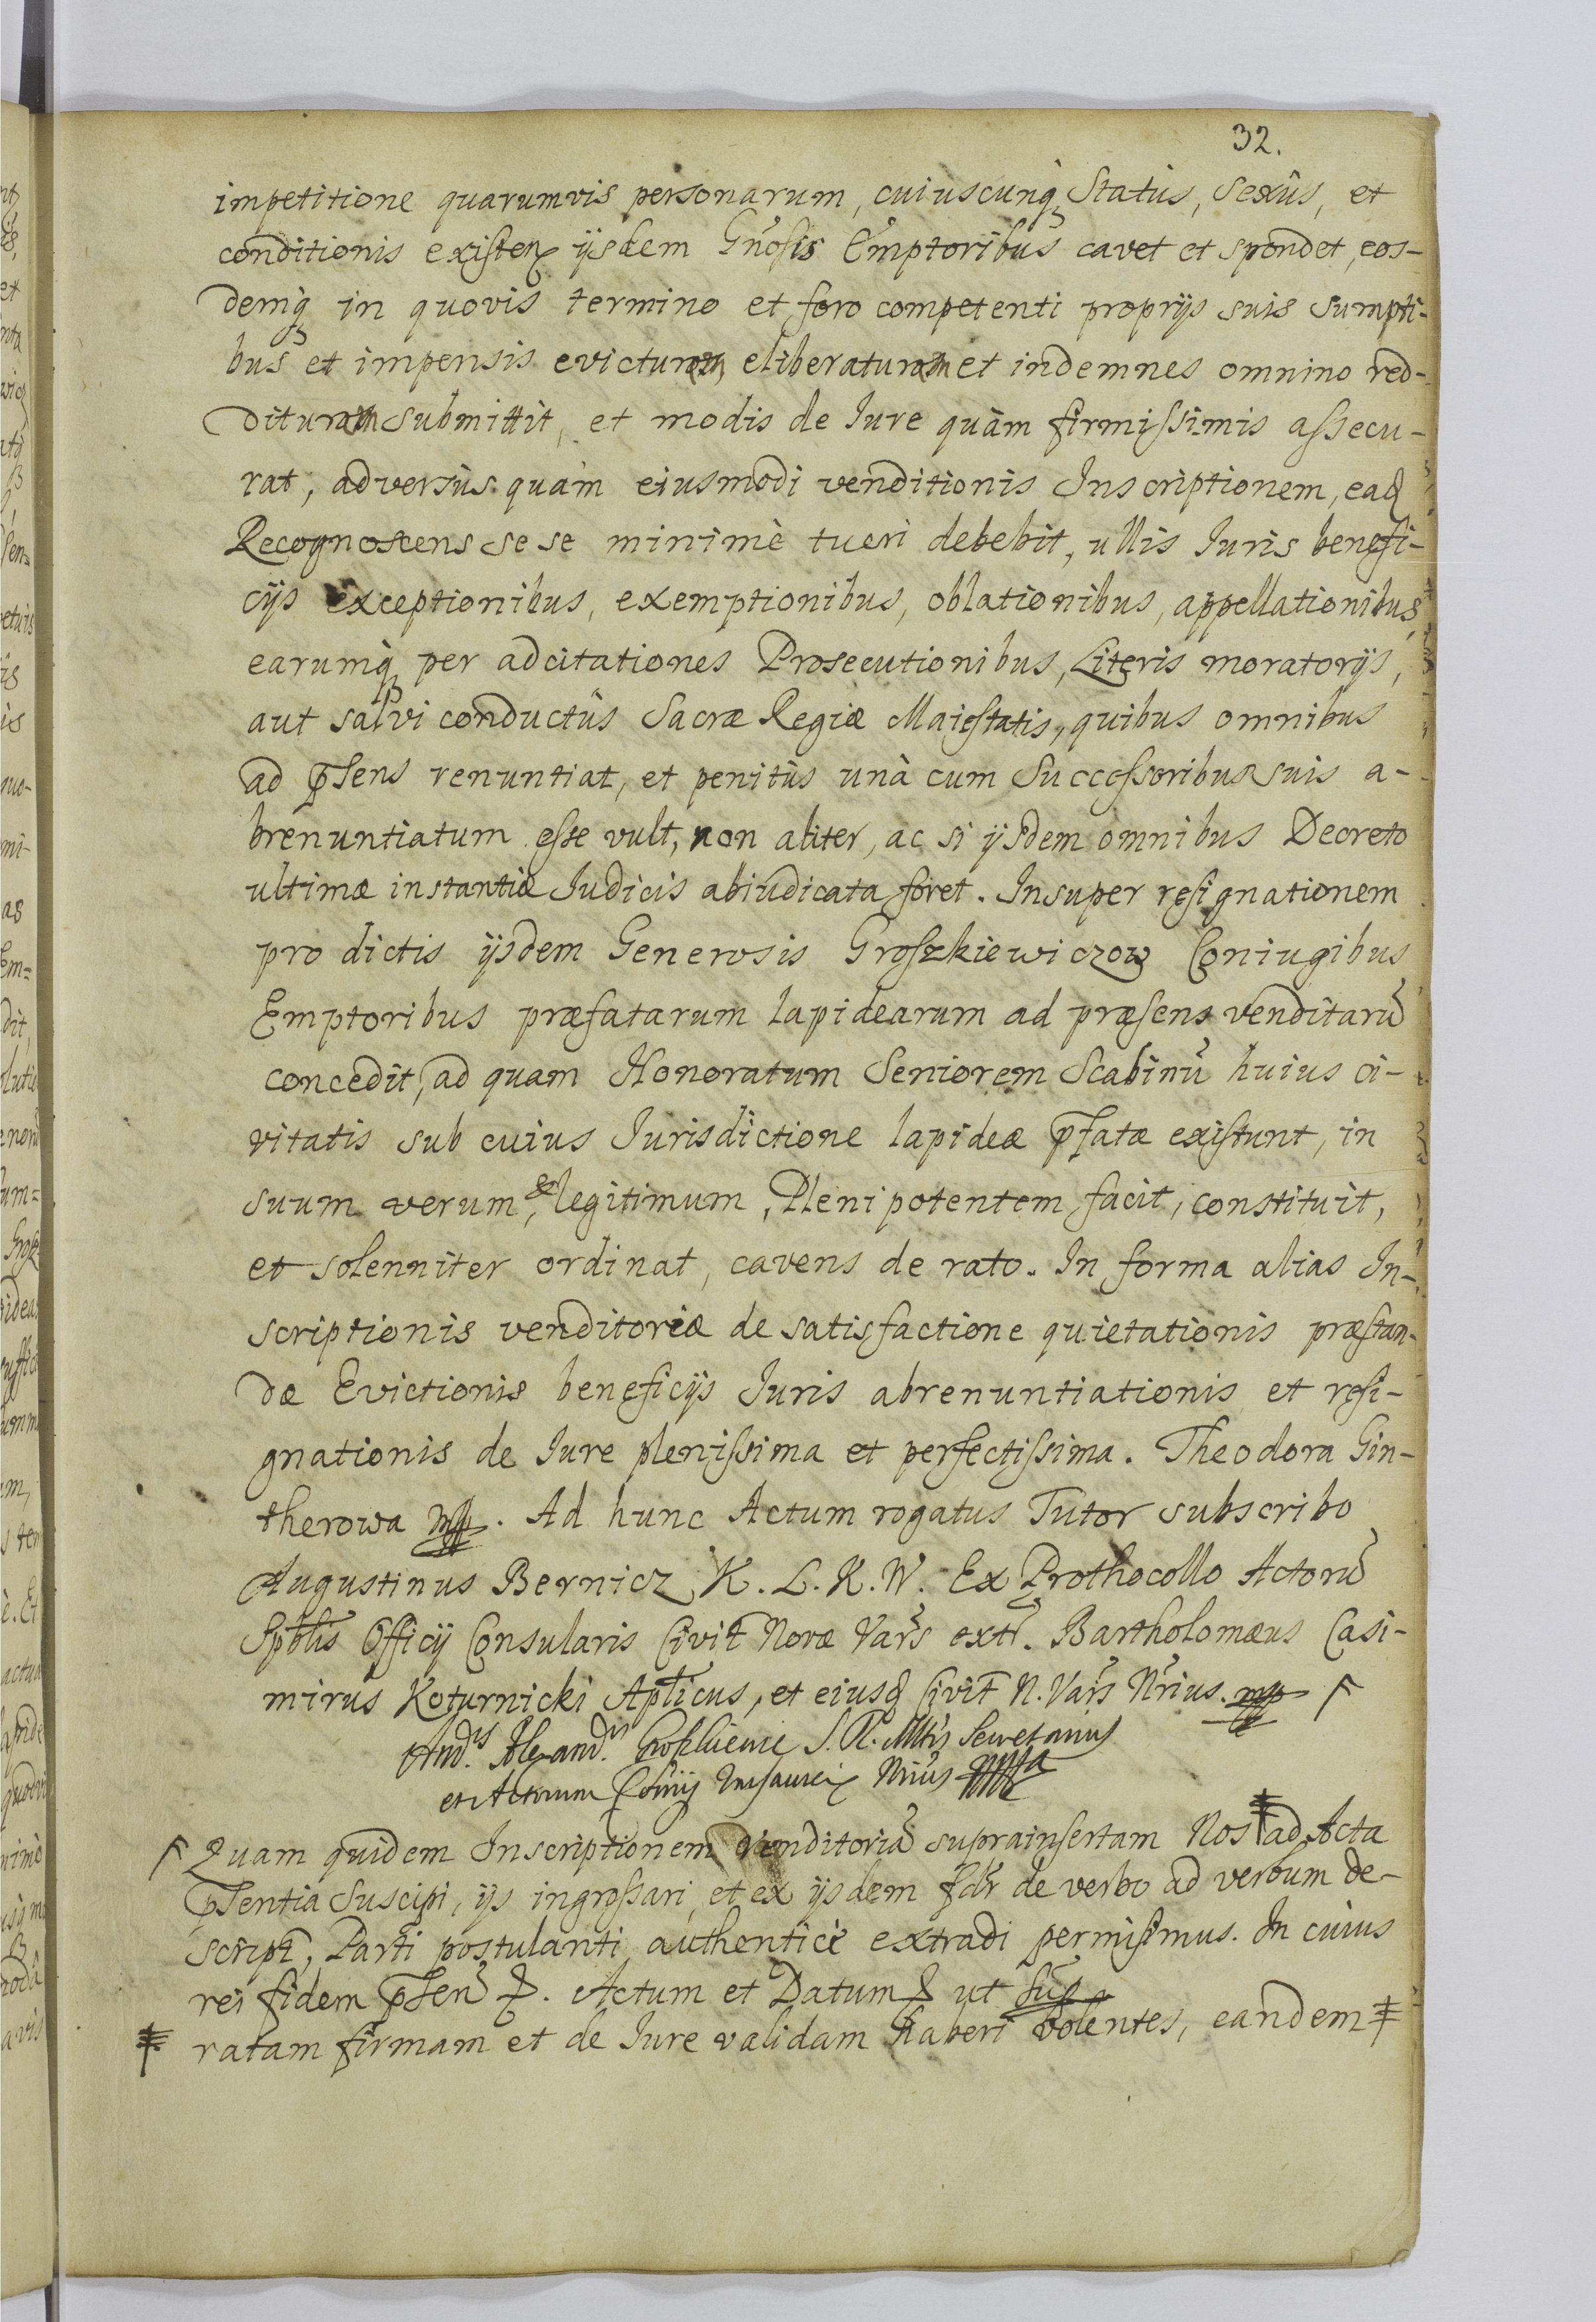 32.
impetitione quarumvis personarum, cuiuscunq̀ Statùs, Sexûs, et
conditionis existen ijsdem Gnosis Emptoribus cavet et spondet, eos-
demq̀ in quovis termino et foro competenti proprijs suis sumpti-
bus et impensis evicturam eliberaturam et indemnes omnino red-
dituram submittit, et modis de Iure quàm firmissimis assecu-
rat, adversùs quàm eiusmodi venditionis Inscriptionem, ead
Recognoscens sese minimè tueri debebit, ullis Iuris benefi-
cijs exceptionibus, exemptionibus, oblationibus, appellationibus,
earumq̀ per adcitationes Prosecutionibus, Literis moratorijs,
aut salvi conductûs Sacræ Regiæ Maiestatis, quibus omnibus
ad p̄sens renuntiat, et penitùs unà cum Successoribus suis a-
brenuntiatum esse vult, non aliter, ac si ijsdem omnibus Decreto
ultimæ instantiæ Iudicis abiudicata foret. Insuper resignationem
pro dictis ijsdem Generosis Groszkiewiczow Coniugibus
Emptoribus præfatarum lapidearum ad præsens venditarũ
concedit, ad quam Honoratum Seniorem Scabinũ huius ci-
vitatis sub cuius Iurisdictione lapideæ p̄fatæ existunt, in
suum verum, et legitimum, Plenipotentem facit, constituit,
et solenniter ordinat, cavens de rato. In forma alias In-
scriptionis venditoriæ de satisfactione quietationis præstan-
dæ Evictionis beneficijs Iuris abrenuntiationis et resi-
gnationis de Iure plenissima et perfectissima. Theodora Gin-
therowa mp. Ad hunc Actum rogatus Tutor subscribo
Augustinus Bernicz K. L. K. W. Ex Prothocollo Actorũ
Sptblis Officij Consularis Civit Novæ Vars extr. Bartholomæus Casi-
mirus Koturnicki Aplicus, et eiusd Civit N. Vars Nrius. mp
And. Alexand. S. R. Mttis Secretarius
et Actorum Nrius mppa
Quam quidem Inscriptionem venditoriã suprainsertam Nos ‡ ad Acta
p̄sentia suscipi, ijs ingrossari, et ex ijsdem fdr de verbo ad verbum de-
script, Parti postulanti authenticè extradi permisimus. In cuius
rei fidem p̄sen. Actum et Datum ut sup̃
‡ ratam firmam et de Iure validam haberi volentes, eandem ‡